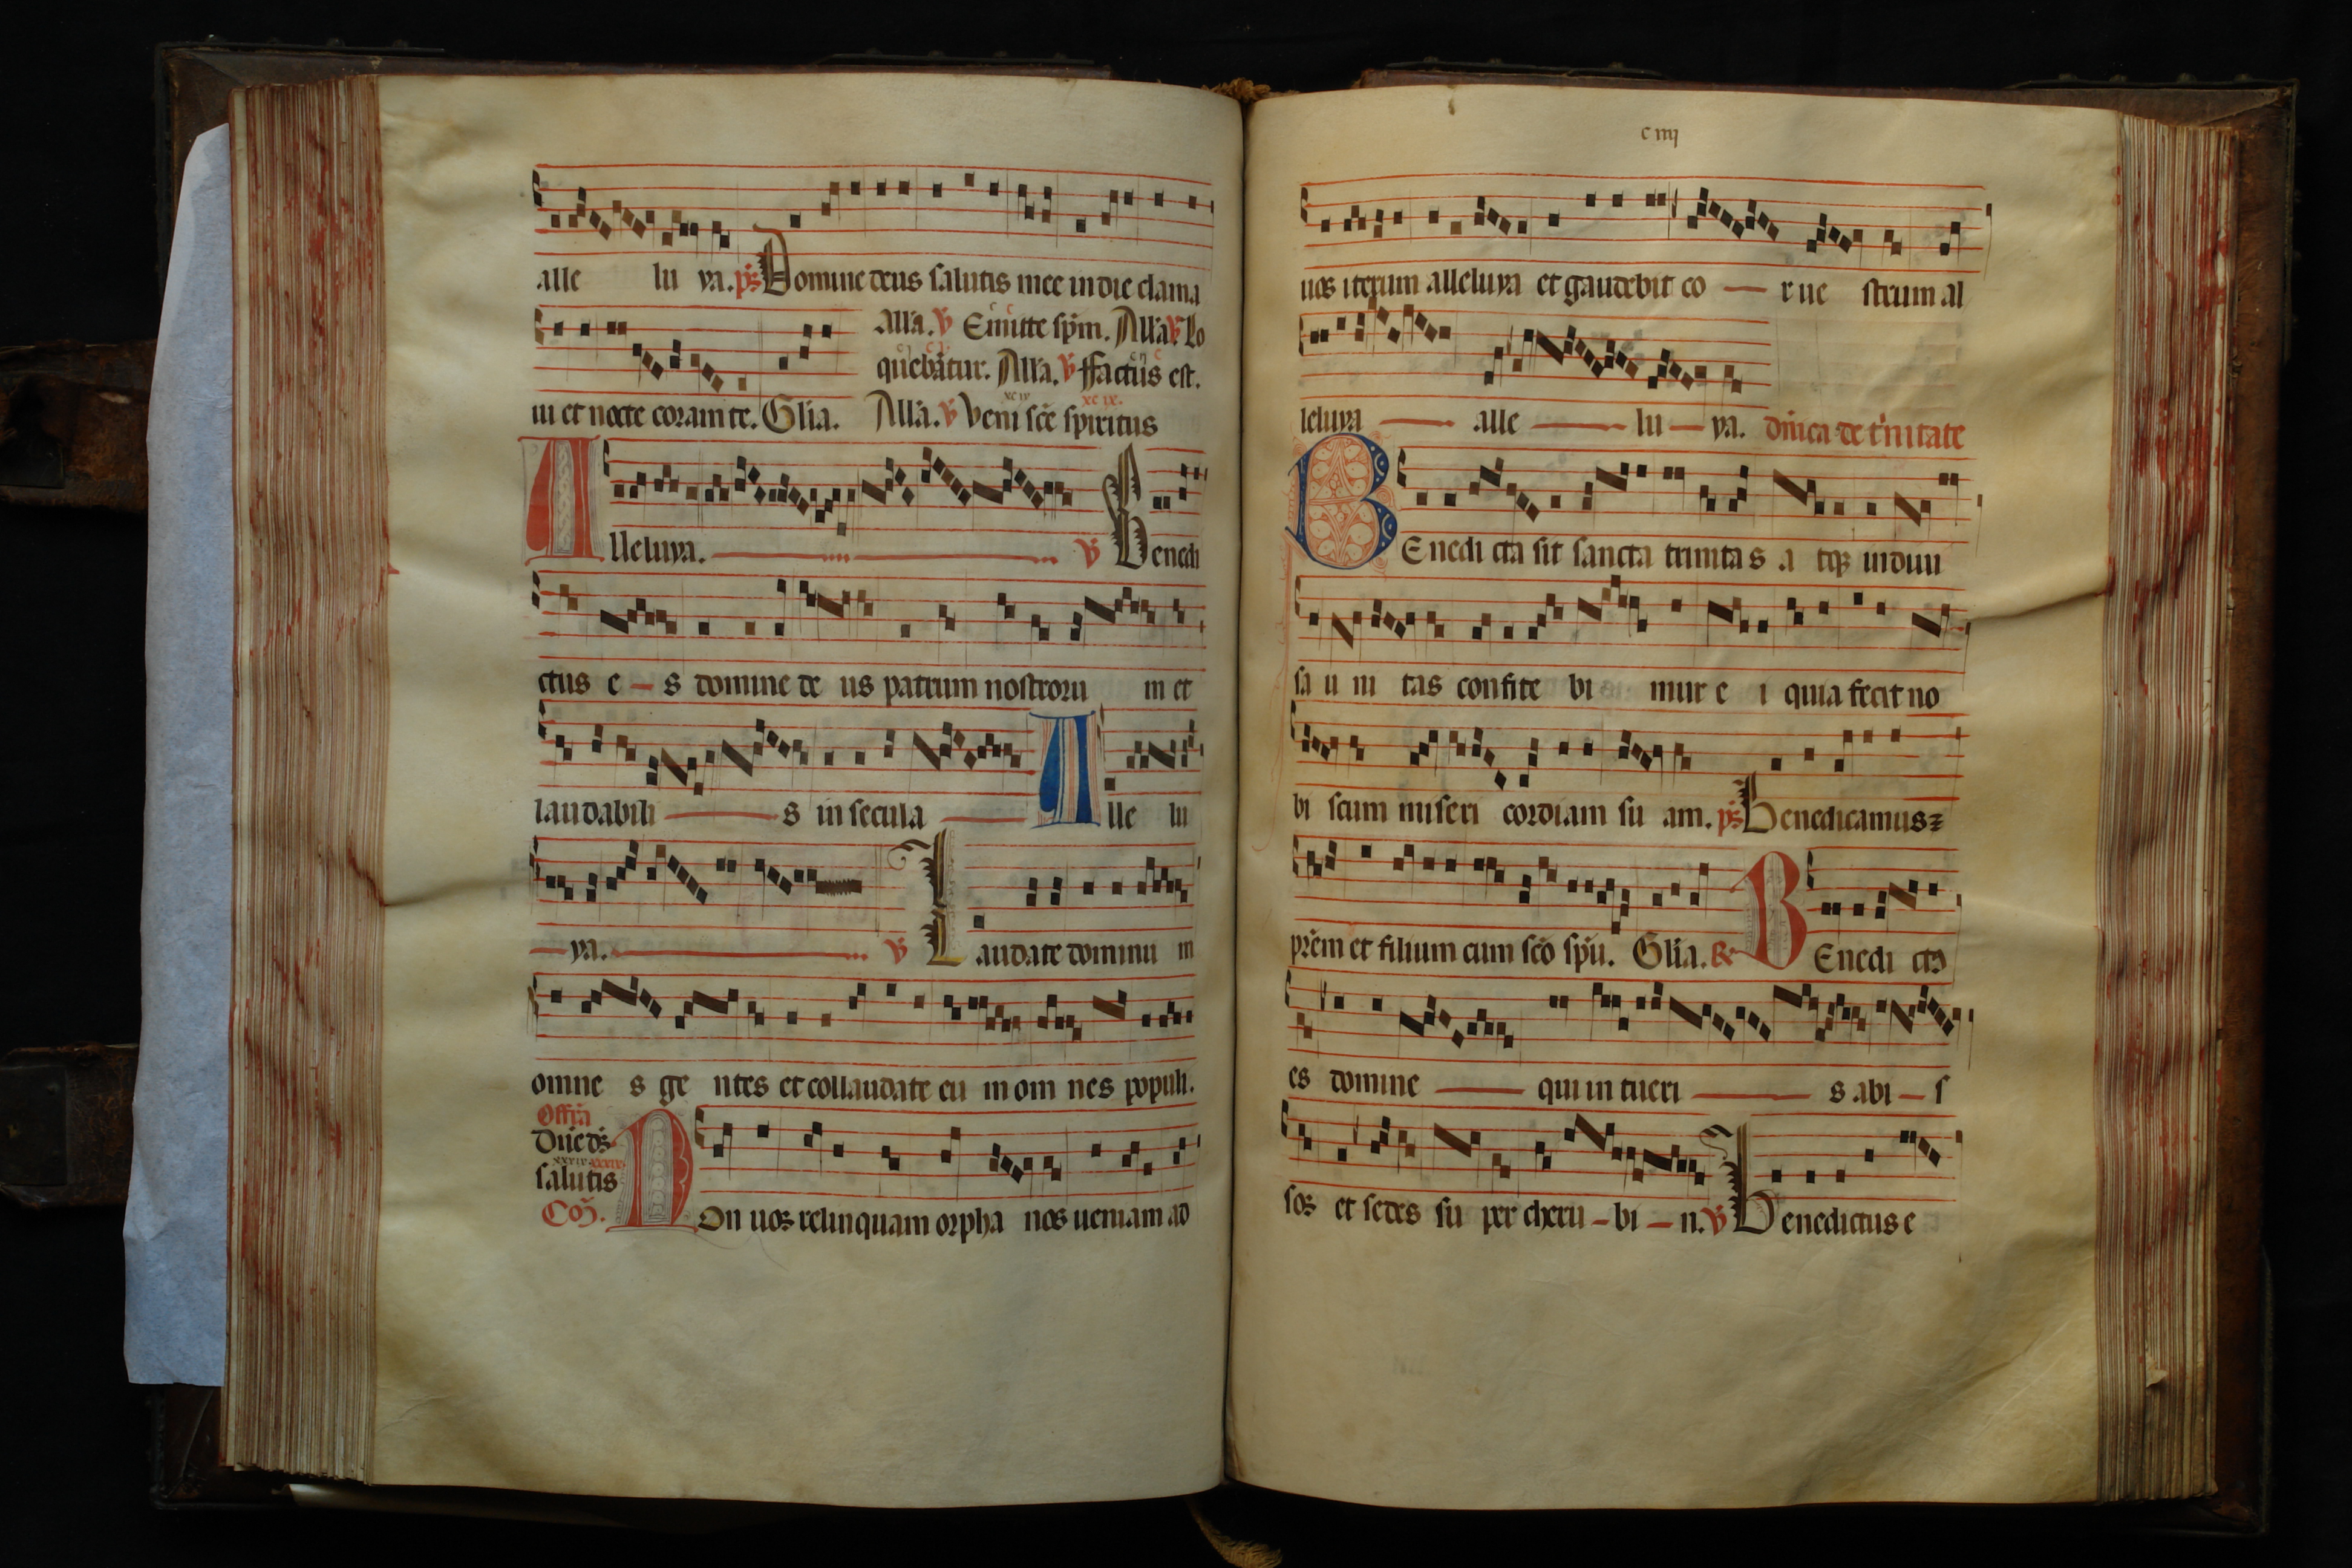 alle lu ya. ps Domine deus salutis mee in die clama
Alla. V Emitte spm. Alla. V Lo
quebatur. Alla. V ffactus est.
ui et nocte coram te. Glia. Alla. V Veni sce spiritus
Alleluya. V Benedi
ctus e s domine de us patrum nostroru m et
laudabili s in secula Alle lu
ya. V Laudate dominu m
omne s ge ntes et collaudate eu m om nes populi.
Offra
Dne ds
salutis
Co.
Non uos relinquam orpha nos ueniam ad
c iiij
uos iterum alleluya et gaudebit co r ue strum al
leluya alle lu ya. dnica de t'nitate
BEnedi cta sit sancta trinita s a tqz indiui
sa u ni tas confite bi mur e i quia fecit no
bi scum miseri cordiam su am. ps Benedicamus
prem et filium cum sco spu. Glia. BEnedi ct
es domine qui in tueri s abi s
sos et sedes su per cheru bi n. V Benedictus e